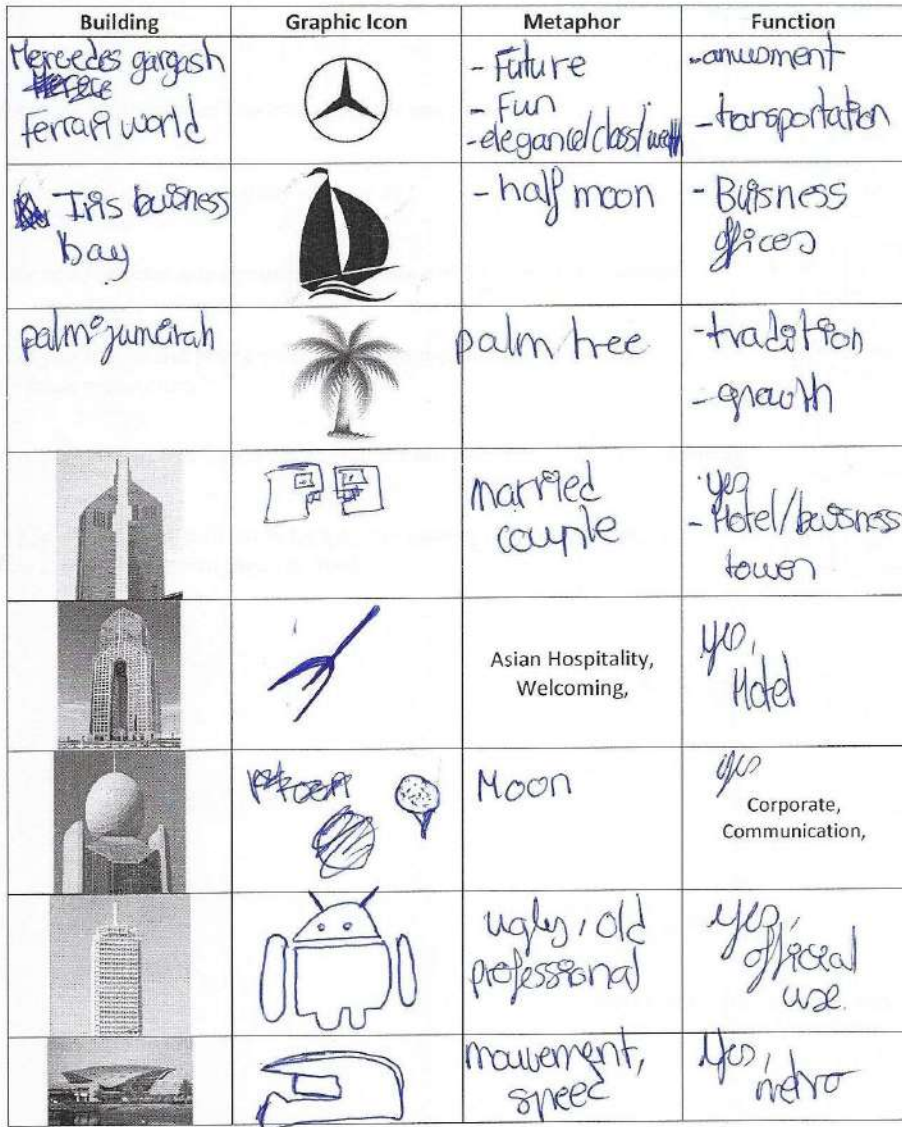 Building Graphic Icon Metaphor Function
Mercedes gargash
Ferrari world
- Future
- Fun
- elegance/class/
- amusment
- transportation
Iris buisness
bay
- half moon
- Buisness
offices
palm jumeirah
palm tree
- tradition
- growth
married
couple
yes
- Hotel/buisness
tower
Asian Hospitality,
Welcoming,
yes,
Hotel
Moon
yes
Corporate,
Communication,
ugly, old
professional
yes,
official
use.
mouvement,
speed
Yes,
metro